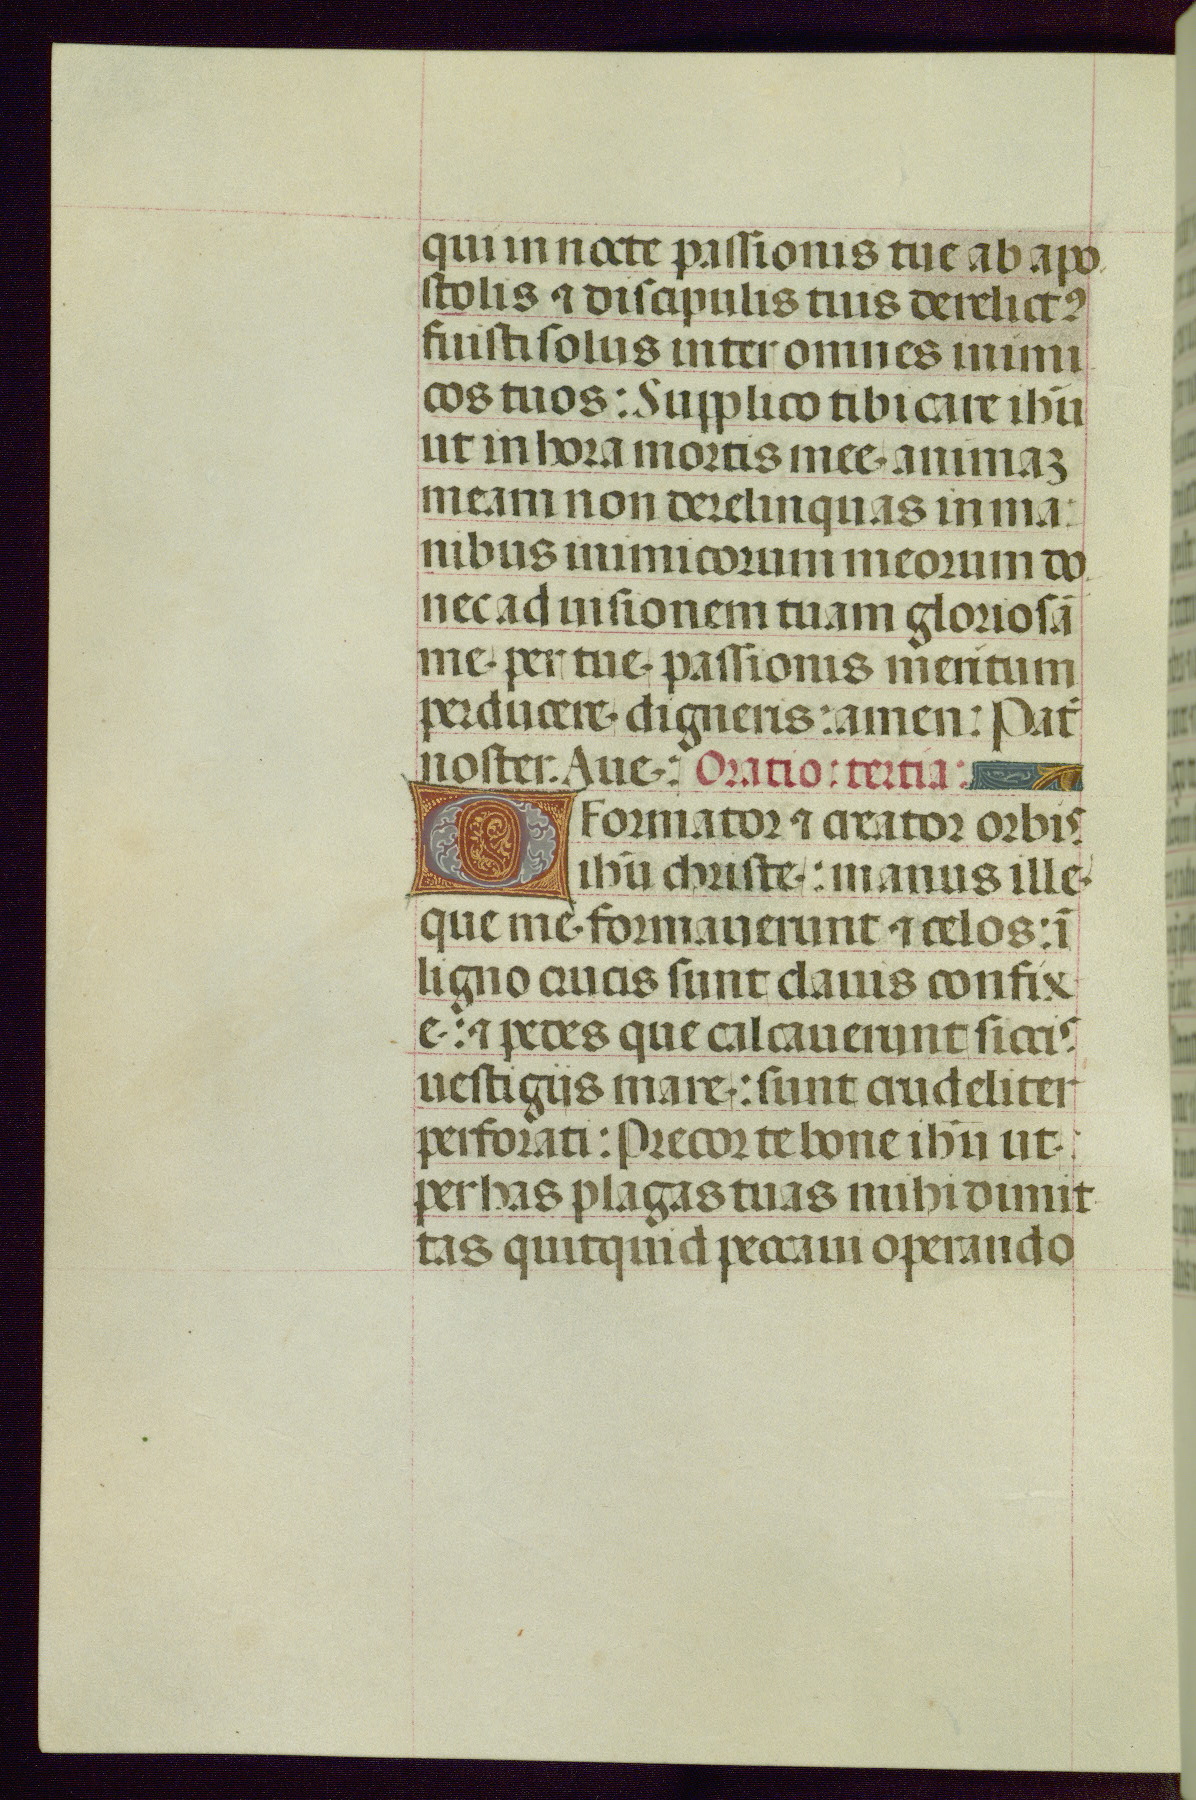 qui in nocte passionis tue ab apo
stolis ⁊ discipulis tuis derelictꝰ
fuisti solus inter omnes inimi
cos tuos: Supplico tibi care ihū
ut in hora mortis mee. animaꝫ
meam non derelinquas in ma
nibus inimicorum meorum do
nec ad uisionem tuam gloriosā
me. per tue. passionis meritum
perducere. digneris: amen: Pat̄
noster. Aue.: Oratio: tertia:
O formator ⁊ creator orbis
ihū christe.: manus ille.
que me. formauerunt ⁊ celos: ī
ligno crucis sunt clauis confix
e.: ⁊ pedes que calcauerunt siccis
uestigiis mare.: sunt crudeliter
perforati: Precor te bone ihū ut.
per has plagas tuas mihi dimit
tas quitquid peccaui operando